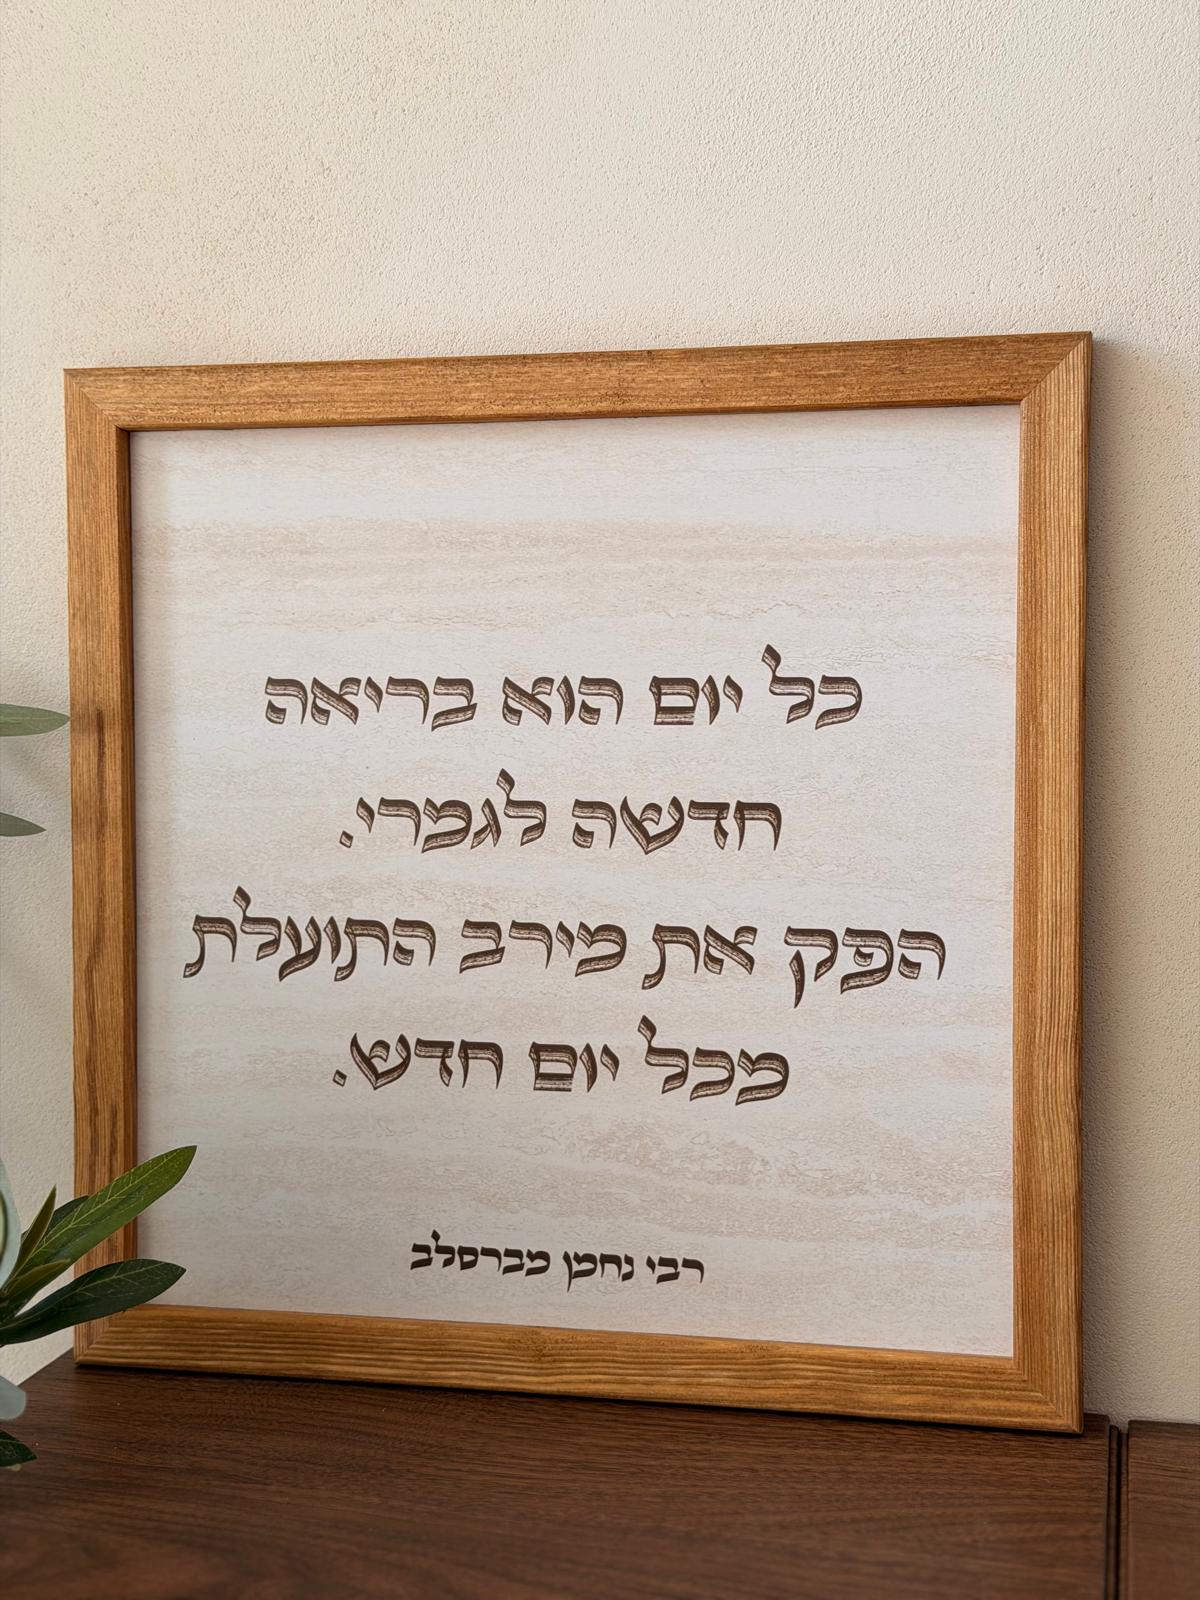 כל יום הוא בריאה
חדשה לגמרי.
הפק את מירב התועלת
מכל יום חדש.
רבי נחמן מברסלב